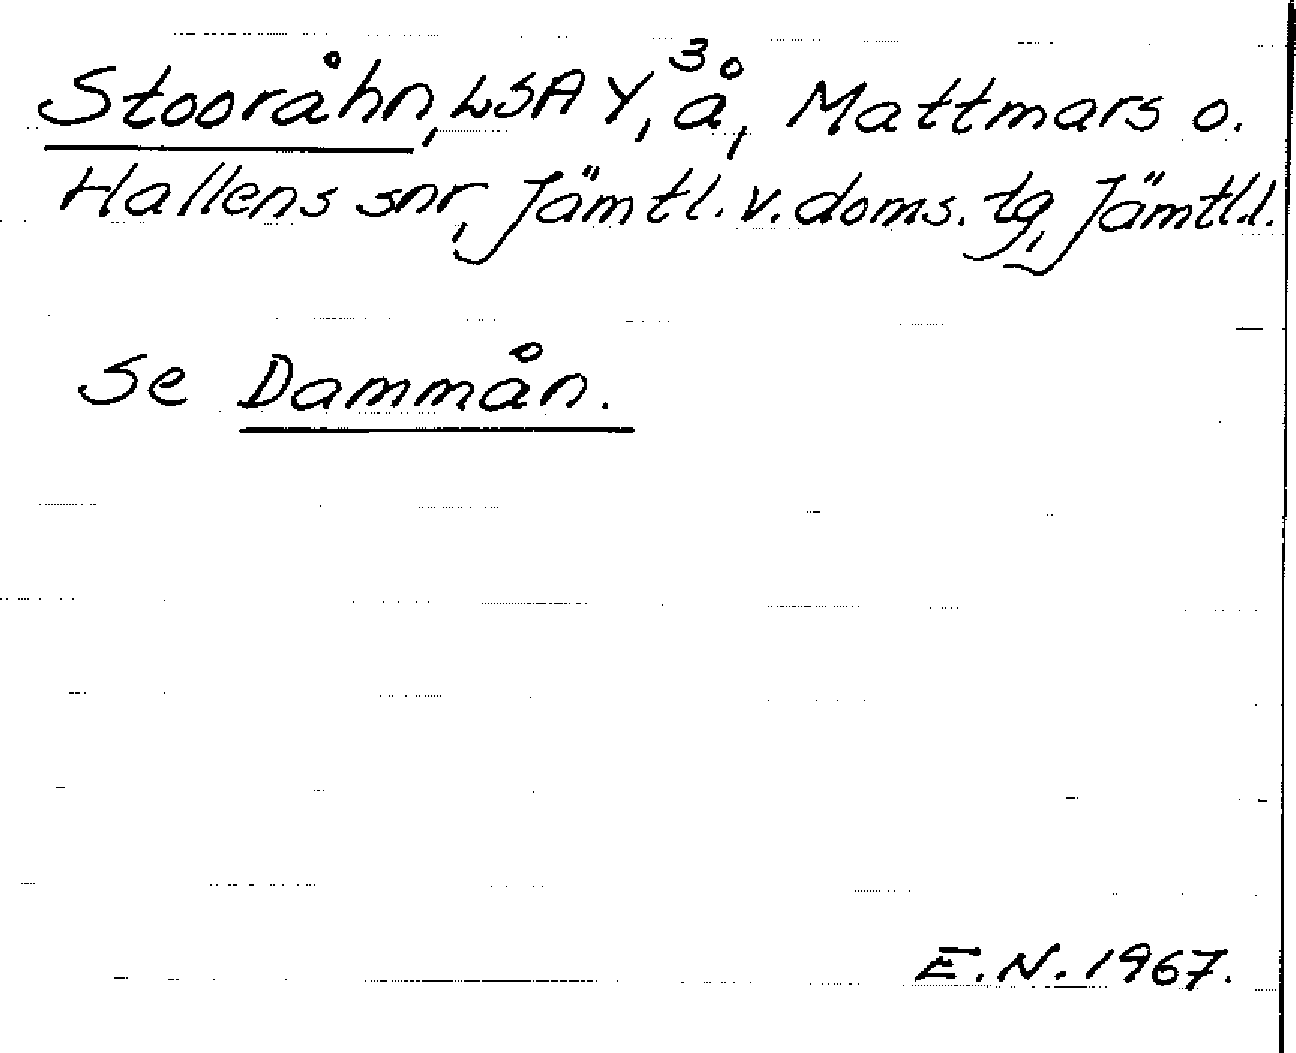 Stooråhn, LSA Y, å³, Mattmars o.
Hallens snr, Jämtl. v. doms. tg, Jämtl.l.
Se Dammån.
E.N. 1967.